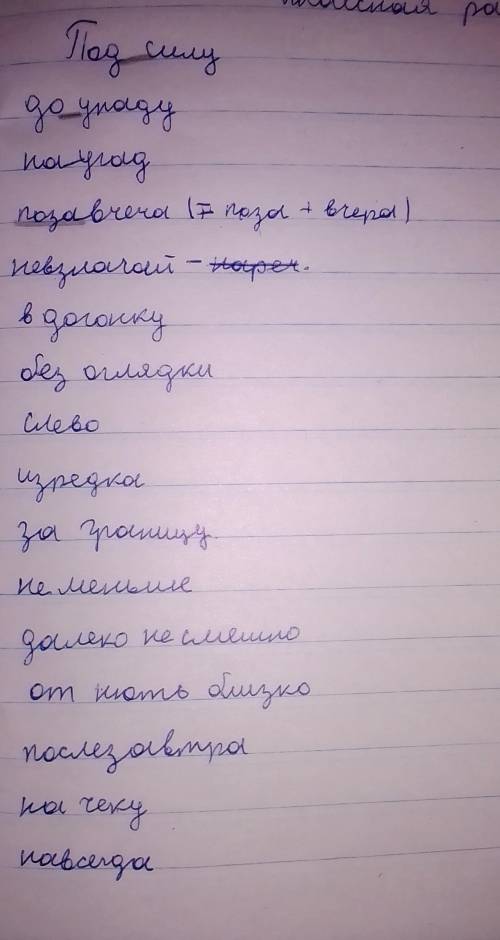 классная ра
Под силу
до упаду
на угад
позавчеча (= поза + вчера)
невзлачай - нареч.
в догонку
без оглядки
слево
изредка
за границу
не меньше
далеко не смешно
от нють близко
послезавтра
на чеку
навсегда